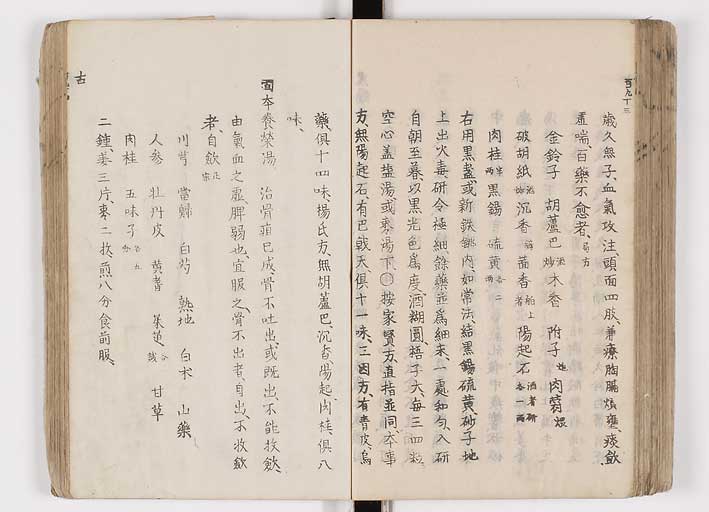 歳久無子、血氣攻注、頭面四肢、兼療胸膈煩壅、痰飲
虚喘、百藥不愈者、局方
金鈴子 胡蘆巴 炒 木香 附子 炮 肉蓯 煨
破胡紙 沉香 茴香 舶上 陽起石 酒煮研 各一兩
肉桂 半兩 黒錫 硫黄 各二兩
右用黒盞、或新鉄銚内、如常法、結黒錫硫黄、砂子、地
上出火毒、研令極細、餘藥並爲細末、一處和勻入研
自朝至暮、以黒光色爲度、酒糊圓、梧子大、毎三四粒
空心、盖塩湯、或棗湯下○按家寳方、直指並同、本事
方、無陽起石、有巴戟天、俱十一味、三因方、有青皮、烏
藥、俱十四味、楊氏方、無胡蘆巴、沉香、陽起、肉桂、俱八
味、
本養榮湯 治骨疽已成、骨不吐出、或既出、不能收歛、
由氣血之虚、脾弱也、宜服之、骨不出者、自出、不收歛
者、自歛 正宗
川芎 當歸 白芍 熟地 白朮 山藥
人参 牡丹皮 黄耆 茱萸 各 甘草
肉桂 五味子 各五
二鍾、姜三片、棗二枚、煎八分、食前服、
古
百九十三